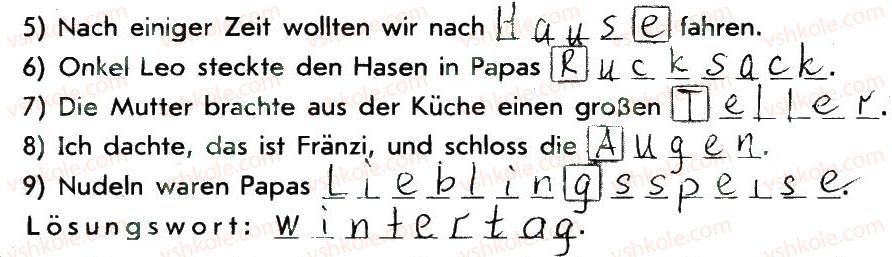 5) Nach einiger Zeit wollten wir nach Hause fahren.
6) Onkel Leo steckte den Hasen in Papas Rucksack.
7) Die Mutter brachte aus der Küche einen großen Teller.
8) Ich dachte, das ist Fränzi, und schloss die Augen.
9) Nudeln waren Papas Lieblingsspeise.
Lösungswort: Wintertag.